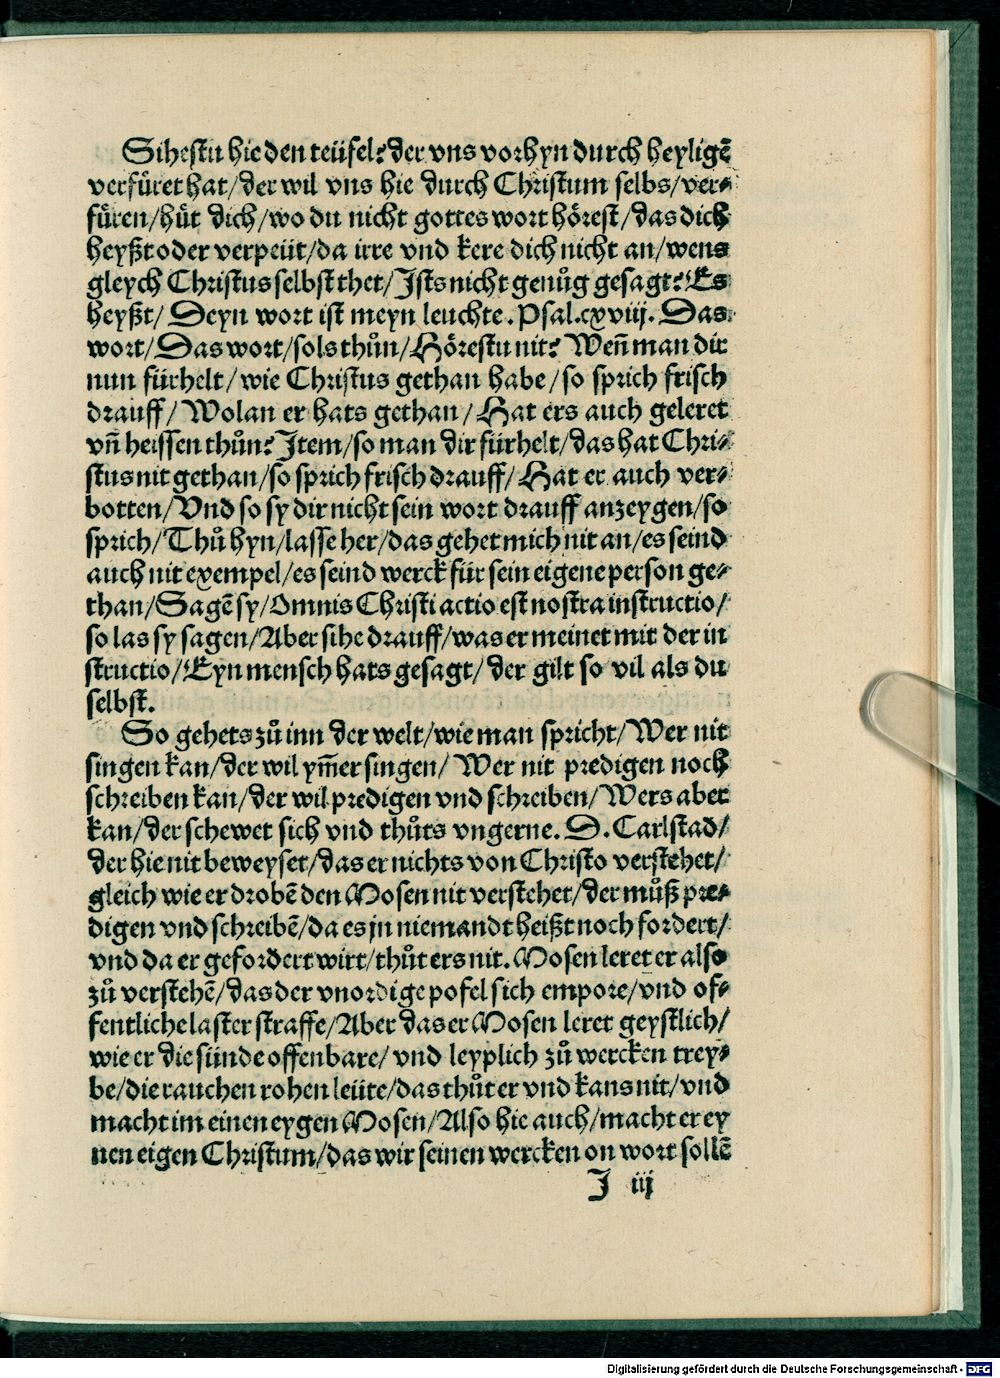 Sihestu hie den teüfel? der vns vorhyn durch heyligẽ
verfüret hat/ der wil vns hie durch Christum selbs/ ver⸗
füren/ hüt dich/ wo du nicht gottes wort hörest/ das dich
heyßt oder verpeüt/ da irre vnd kere dich nicht an/ wens
gleych Christus selbst thet/ Ists nicht genůg gesagt? Es
heyßt/ Deyn wort ist meyn leuchte. Psal. cxviij. Das
wort/ Das wort/ sols thůn/ Hörestu nit? Weñ man dir
nun fürhelt/ wie Christus gethan habe/ so sprich frisch
drauff/ Wolan er hats gethan/ Hat ers auch geleret
vñ heissen thůn? Item/ so man dir fürhelt/ das hat Chri⸗
stus nit gethan/ so sprich frisch drauff/ Hat er auch ver⸗
botten/ Vnd so sy dir nicht sein wort drauff anzeygen/ so
sprich/ Thů hyn/ lasse her/ das gehet mich nit an/ es seind
auch nit exempel/ es seind werck für sein eigene person ge⸗
than/ Sagẽ sy/ Omnis Christi actio est nostra instructio/
so las sy sagen/ Aber sihe drauff/ was er meinet mit der in
structio/ Eyn mensch hats gesagt/ der gilt so vil als du
selbst.
So gehets zů inn der welt/ wie man spricht/ Wer nit
singen kan/ der wil ym̃er singen/ Wer nit predigen noch
schreiben kan/ der wil predigen vnd schreiben/ Wers aber
kan/ der schewet sich vnd thůts vngerne. D. Carlstad/
der hie nit beweyset/ das er nichts von Christo verstehet/
gleich wie er drobẽ den Mosen nit verstehet/ der můß pre⸗
digen vnd schreibẽ/ da es jn niemandt heißt noch fordert/
vnd da er gefordert wirt/ thůt ers nit. Mosen leret er also
zů verstehẽ/ das der vnordige pofel sich empore/ vnd of⸗
fentliche laster straffe/ Aber das er Mosen leret geystlich/
wie er die sünde offenbare/ vnd leyplich zů wercken trey⸗
be/ die rauchen rohen leüte/ das thůt er vnd kans nit/ vnd
macht im einen eygen Mosen/ Also hie auch/ macht er ey
nen eigen Christum/ das wir seinen wercken on wort sollẽ
I iij
Digitalisierung gefördert durch die Deutsche Forschungsgemeinschaft - DFG